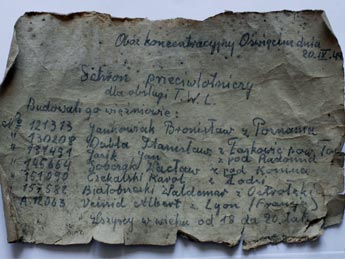 Obóz koncentracyjny Oświęcim dnia
20.IX.44
Schron przeciwlotniczy
dla obsługi T.W.L.
Budowali go więźniowie:
Nr 121313 Jankowiak Bronisław z Poznania
" 130208 Dubla Stanisław z Łaskowic pow.
" 131491 Jasik Jan z pod Radomia
" 145664 Sobczak Wacław z pod Konina
" 151090 Czekalski Karol z Łodzi
" 157582 Białobrzski Waldemar z Ostrołęki
A 12063 Veissid Albert z Lyon (Francja)
Wszyscy w wieku od 18 do 20 lat.